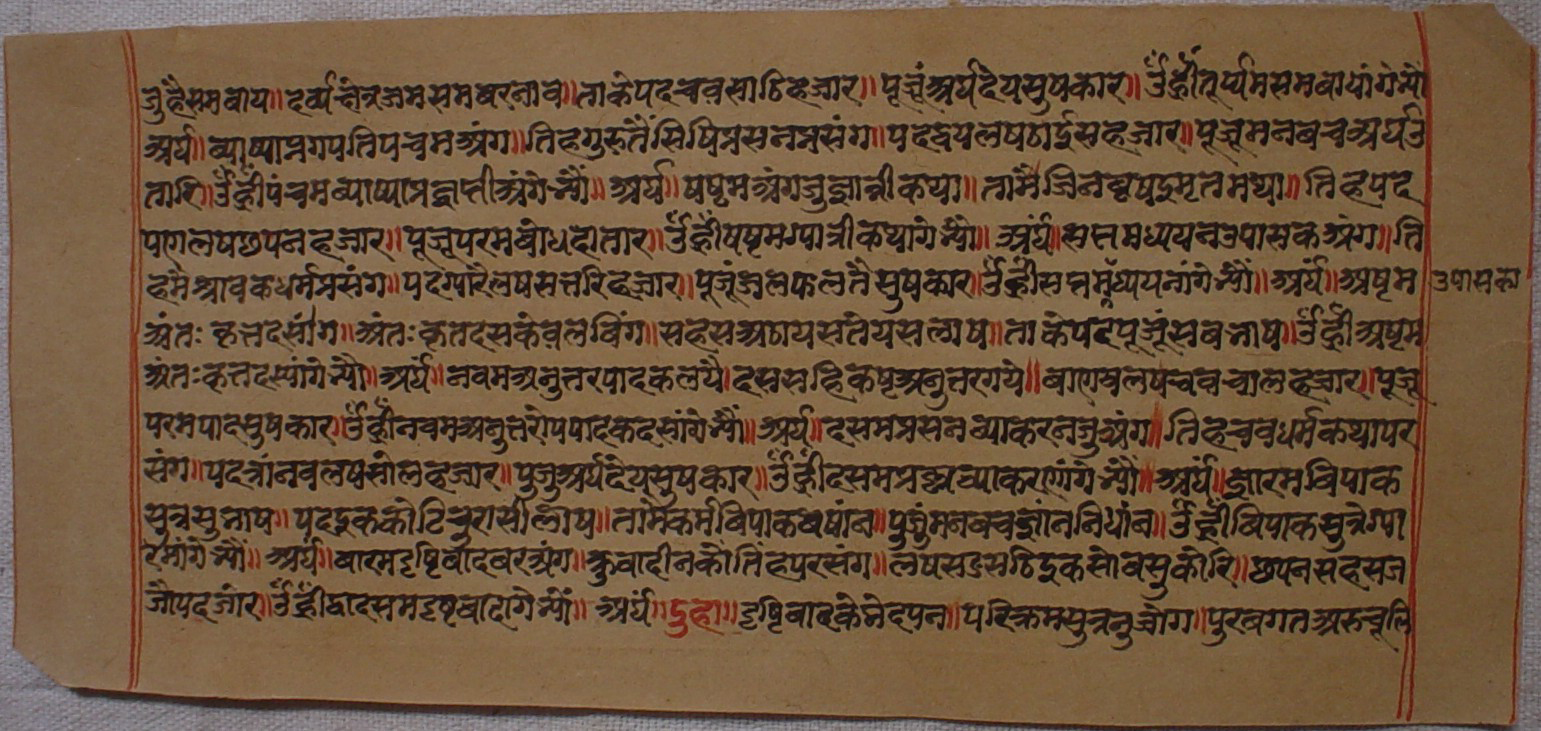 जुहैसमवाय॥दर्व्यछेत्रजमसमबरनाव॥ताकेपदचवसाठिहजार॥पूजूंअर्घदेयसुषकार॥ॐह्रींतूर्य्यमसमवायांगेभ्यो
अर्घ॥व्याष्याप्रगपतिपचमअंग॥तिहगुरुतैंसिषिप्रसनप्रसंग॥पददेयलषठाईसहजार॥पूजूमनबचअर्घउ
तारि॥ॐह्रींपंचमव्याष्याप्रज्ञप्तीअंगेभ्यों॥अर्घ॥षष्टमअंगजुज्ञात्रीकथा॥तामैंजिनबृषइमृतमथा॥तिहपद
पागलषछपनहजार॥पूजूपरमबोधदातार॥ॐह्रींषष्टमग्यात्रीकथांगेभ्यो॥अर्घ॥सप्तमध्ययनउपासकअंग॥ति
हमेश्रावकधर्मप्रसंग॥पदग्यारैलषसत्तरिहजार॥पूजूंजलफलतैसुषकार॥ॐह्रींसप्तमध्ययनांगेभ्यों॥अर्घ॥अष्टम उपासका
अंतःकृत्तदसांग॥अंतःकृतदसकेवलविंग॥सहसअठायसतेयसलाष॥ताकेपदपूजूंसबनाष॥ॐह्रींअष्टम
अंतःकृत्तदसांगेभ्यौ॥अर्घ॥नवमअनुत्तरपादकलयै॥दससहिकष्टअनुत्तरगये॥बाणवलषचवचालहजार॥पूजू
परमपादसुषकार॥ॐह्रींनवमअनुत्तरोपपादकदसांगेभ्यों॥अर्घ॥दसमप्रसनव्याकरनजुअंग॥तिहचवधर्मकथापर
संग॥पदत्रांनवलषसोलहजार॥पुजुअर्घदेयसुषकार॥ॐह्रींदसमप्रश्नव्याकरणांगेभ्यों॥अर्घ॥ज्ञारमविपाक
सुत्रसुनाष॥पदइककोटिचुरासीलाष॥तामेकर्मविपाकबषांन॥पुजुंमनबचज्ञांननिधांन॥ॐह्रींबिपाकसुत्रेग्या
रमांगेभ्यों॥अर्घ॥बारमदृष्टिबादबरअंग॥कुवादीनकौतिंहपरसंग॥लषसडसठिइकसोबसुकोरि॥छपनसहसज
जौपदजोर॥ॐह्रींद्वादसमदृष्टबादांगेभ्यों॥अर्घ॥दुहा॥दृष्टिवादकेभेदपन॥परिक्रमसुत्रनुजोग॥पुरबगतअरुचूलि